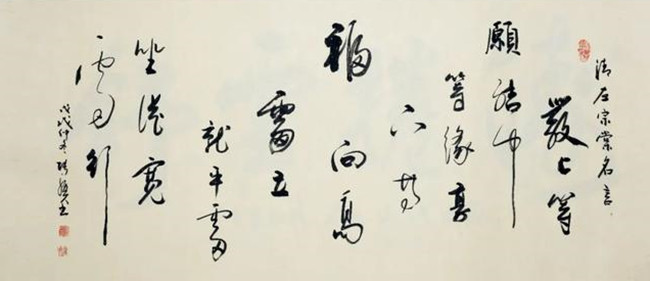 清左宗棠名言
發上等
願結中
等緣享
下等
福向高
處立
就平處
坐從寬
處行
戊戌仲冬